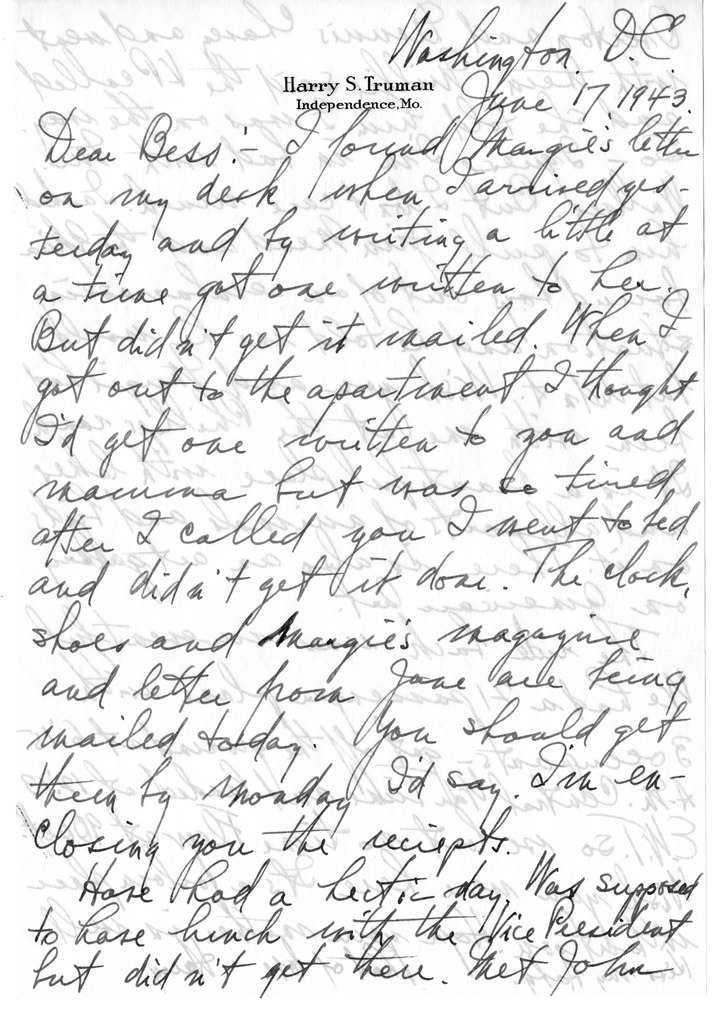 Washington, D.C.
Harry S. Truman
Independence, Mo.
June 17, 1943.
Dear Bess:- I found Margie's letter
on my desk when I arrived yes-
terday and by writing a little at
a time got one written to her.
But didn't get it mailed. When I
got out to the apartment I thought
I'd get one written to you and
mamma but was so tired
after I called you I went to bed
and didn't get it done. The clock,
shoes and Margie's magazine
and letter from Jane are being
mailed today. You should get
them by Monday I'd say. I'm en-
closing you the reciepts.
Have had a hectic day. Was supposed
to have lunch with the Vice President
but didn't get there. Met John